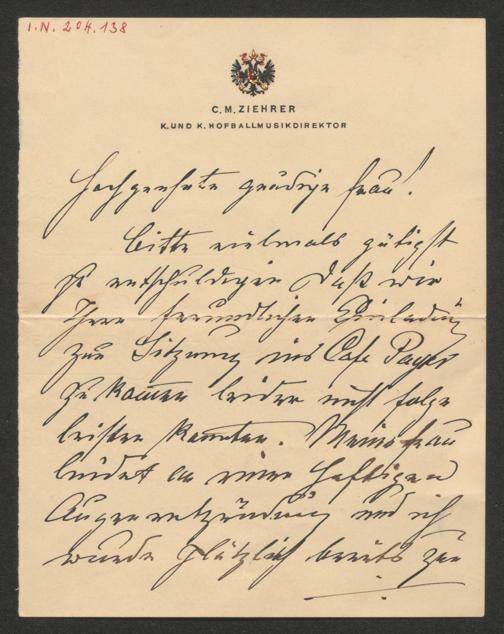 I.N. 204.138
C. M. ZIEHRER
K. UND K. HOFBALLMUSIKDIREKTOR
Hochgeehrte gnädige Frau!
Bitte vielmals gütigst
zu entschuldigen daß wir
Ihrer freundlichen Einladung
zur Sitzung ins Cafe
zu kommen leider nicht folge
leisten konnten. Meine Frau
leidet an einer heftigen
Augenentzündung und ich
wurde plötzlich bereits zur